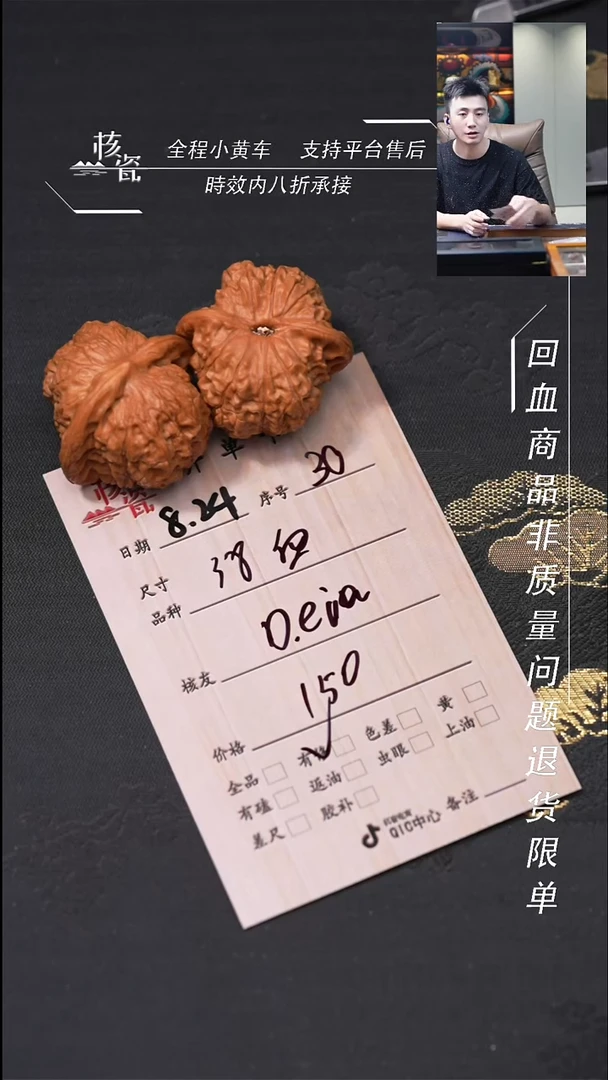 核瓷
全程小黄车 支持平台售后
時效内八折承接
回血商品非质量问题退货限单
核瓷
日期 8.24 序号 30
尺寸
品种
核友 D.eva
价格 150
全品 色差 黄
有磕 返油 虫眼 上油
差尺 胶补
QIC中心 备注